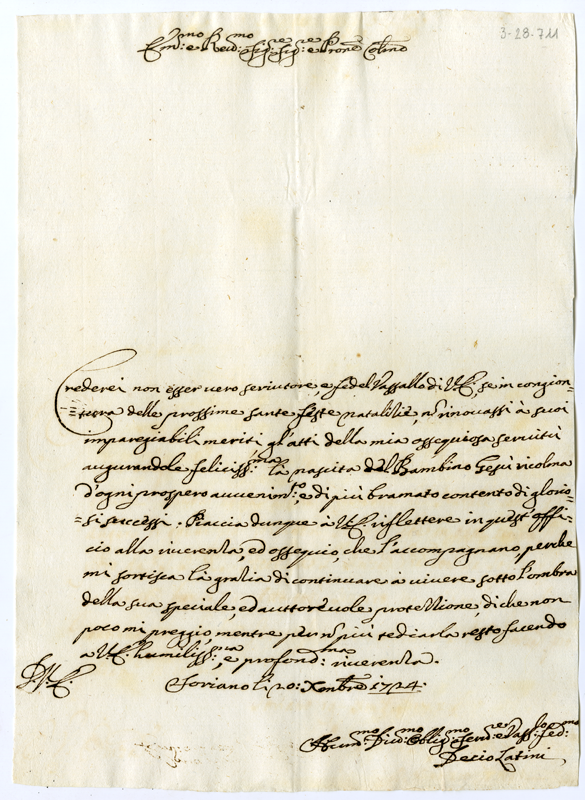 3-28-711
Em:mo e Rev:mo Sig:re Sig:re e Prone Colmo
Crederei non esser vero servitore, e fedel Vassallo di V.E. se in congion=
=tura delle prossime sante feste natalitie, nõ rinovassi à suoi
impareggiabili meriti gl'atti della mia ossequiosa servitù
augurandole feliciss:ma la nascita del Bambino Gesù ricolma
d'ogni prospero avvenim:to, e di più bramato contento di glorio=
=si successi. Piaccia dunque à V.E. riflettere in quest'offi=
cio alla riverenza, ed ossequio, che l'accompagnano, perche
mi sortisca la gratia di continuare à vivere sotto l'ombra
della sua speciale, ed auttorevole protettione, di che non
poco mi preggio, mentre per nõ più tediarla resto facendo
a V.E. humiliss:ma, e profond:ma riverenza.
D.V.E.
Soriano li 20: Xmbre 1724.
Hum:mo Div:mo Oblig:mo Serv:re e Vass:lo fed:mo
Decio Latini